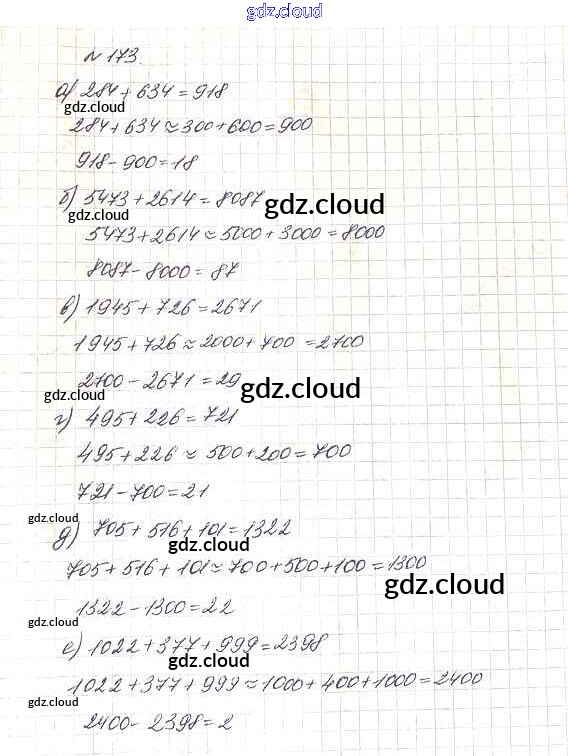 gdz.cloud
№ 173.
а) 284 + 634 = 918
gdz.cloud
284 + 634 ≈ 300 + 600 = 900
918 - 900 = 18
б) 5473 + 2614 = 8087
gdz.cloud gdz.cloud
5473 + 2614 ≈ 5000 + 3000 = 8000
8087 - 8000 = 87
в) 1945 + 726 = 2671
1945 + 726 ≈ 2000 + 700 = 2700
2700 - 2671 = 29
gdz.cloud gdz.cloud
г) 495 + 226 = 721
495 + 226 ≈ 500 + 200 = 700
721 - 700 = 21
gdz.cloud
д) 705 + 516 + 101 = 1322
gdz.cloud
705 + 516 + 101 ≈ 700 + 500 + 100 = 1300
gdz.cloud
1322 - 1300 = 22
gdz.cloud
е) 1022 + 377 + 999 = 2398
gdz.cloud
1022 + 377 + 999 ≈ 1000 + 400 + 1000 = 2400
gdz.cloud
2400 - 2398 = 2